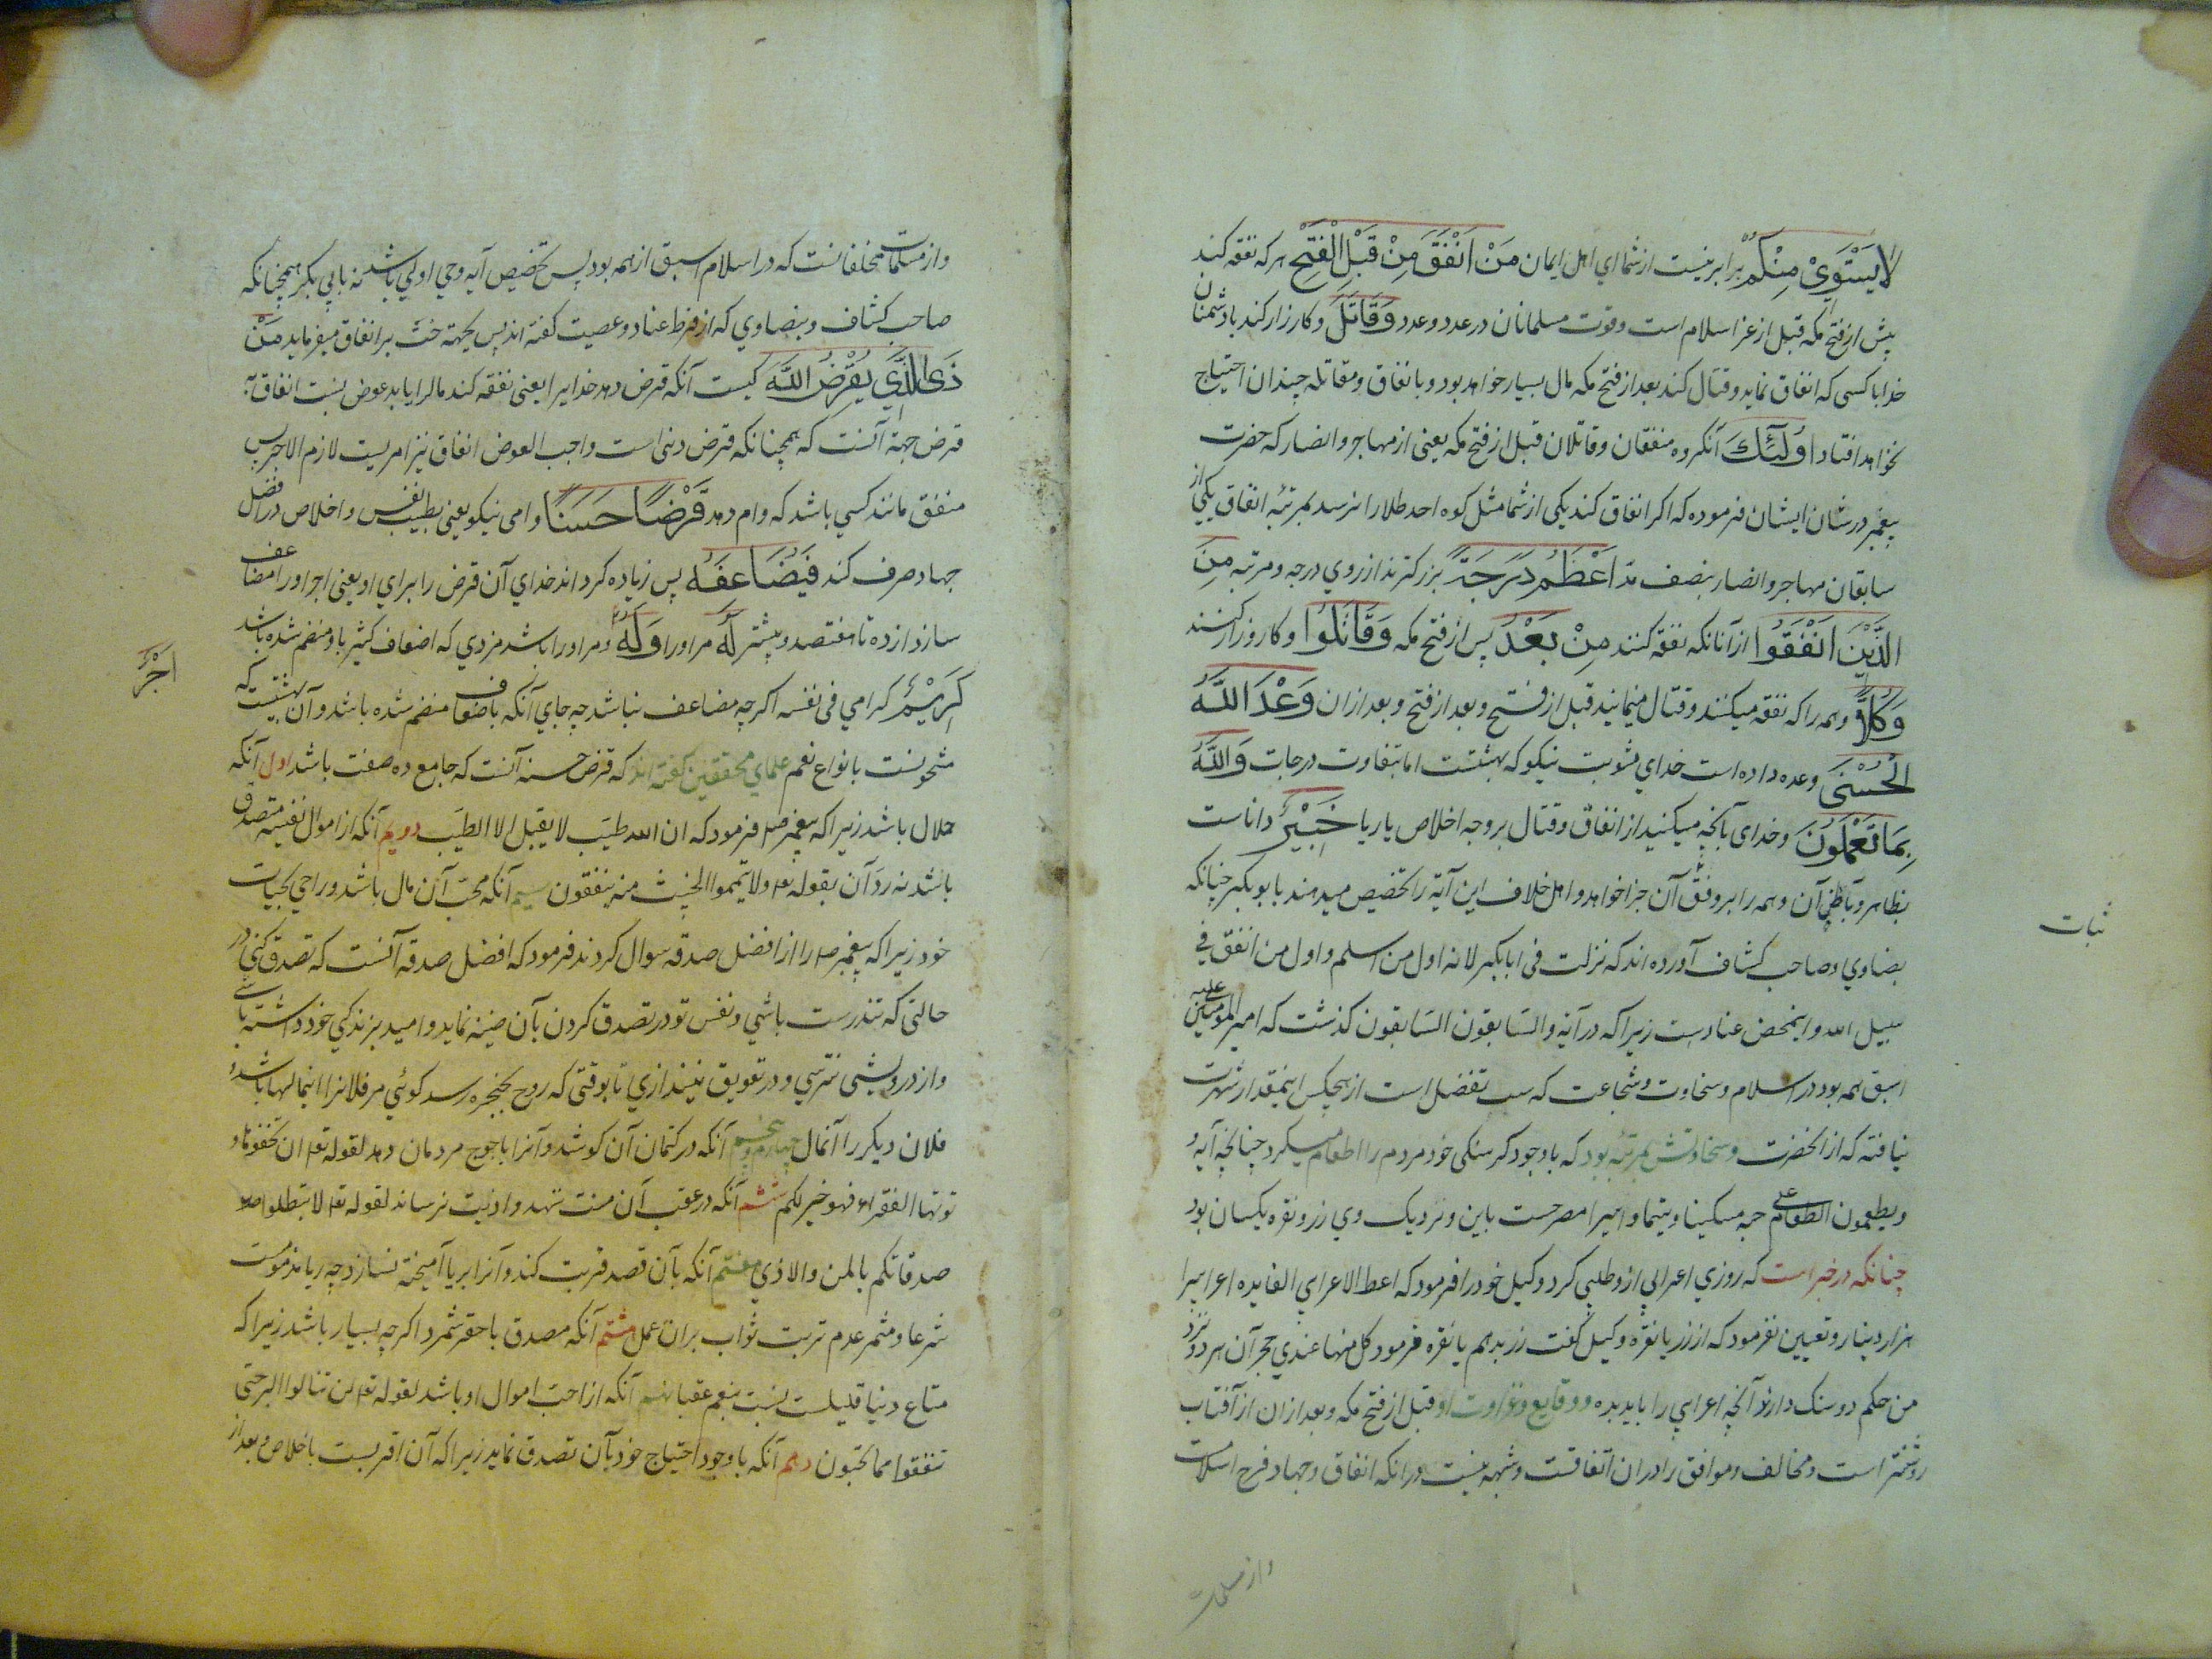 لا يَسْتَوِيْ مِنْكُمْ برابر نیست از شما ای اهل ایمان مَنْ اَنْفَقَ مِنْ قَبْلِ الْفَتْحِ هر که نفقه کند
پیش از فتح مکه قبل از عز اسلام است وقوت مسلمانان در عدد وعدد وَقَاتَلَ وکارزار کند با دشمنان
خدا با کسی که انفاق نماید وقتال کند بعد از فتح مکه مال بسیار خواهد بود وبانفاق ومقاتله چندان احتیاج
نخواهد افتاد اُولٰٓئِكَ آنگروه منفقان وقاتلان قبل از فتح مکه یعنی از مهاجر وانصار که حضرت
پیغمبر در شان ایشان فرموده که اکر انفاق کند یکی از شما مثل کوه احد طلا را نرسد بمرتبهٔ انفاق یکی از
سابقان مهاجر وانصار بنصف مد اَعْظَمُ دَرَجَةً بزرکترند از روی درجه ومرتبه مِنَ
الَّذِيْنَ اَنْفَقُوا از آنانکه نفقه کنند مِنْ بَعْدُ پس از فتح مکه وَقَاتَلُوا وکارزار کنند
وَكُلًّا وهمه را که نفقه میکنند وقتال مینمایند قبل از فتح وبعد از فتح وبعد از ان وَعَدَ اللَّهُ
الْحُسْنٰى وعده داده است خدای مثوبت نیکو که بهشتست اما بتفاوت درجات وَاللَّهُ
بِمَا تَعْمَلُوْنَ وخدای بآنچه میکنید از انفاق وقتال بر وجه اخلاص یا ریا خَبِيْرٌ داناست
بظاهر وباطن آن وهمه را بر وفق آن جزا خواهد داد واهل خلاف این آیة را تخصیص میدهند بابوبکر چنانکه
بیضاوی وصاحب کشاف آورده اند که نزلت فی ابابکر لانه اول من اسلم واول من انفق فی
سبیل الله واینمحض عنادست زیرا که در آیهٔ والسّابقون السّابقون کذشت که امیر المؤمنین علیه
اسبق همه بود در اسلام وسخاوت وشجاعت که سبب تفضل است از هیچکس اینمقدار شهرت
نیافته که از انحضرت وسخاوتش بمرتبهٔ بود که باوجود کرسنکی خود مردم را اطعام میکرد چنانچه آیهٔ و
ویطعمون الطعام علی حبه مسکینا ویتیما واسیرا مصرحست باین ونزدیک وی زر ونقره یکسان بود
چنانکه در خبر است که روزی اعرابی ازو طلبی کرد وکیل خود را فرمود که اعط الاعرابی الفا یده اعرابیرا
هزار دینار وتعیین نفرمود که از زر یا نقره وکیل گفت زر بدهم یا نقره فرمود کل منهما عندی حجر آن هر دو نزد
من حکم دو سنک دارد آنچه اعرابی را باید بده ووقایع وغزاوت او قبل از فتح مکه وبعد از ان از آفتاب
روشنتر است ومخالف وموافق را در ان اتفاقست وشبهه نیست در انکه انفاق وجهاد فرع اسلام است
ثبات
واز مسلمات
واز مسلمات مخالفانست که در اسلام اسبق از همه بود پس تخصیص آیه بوی اولی باشد نه بابی بکر همچنانکه
صاحب کشاف وبیضاوی که از فرط عناد وعصبیت کفته اند پس بجهة حث بر انفاق میفرماید مَنْ
ذَى الَّذِي يُقْرِضُ اللَّهَ کیست آنکه قرض دهد خدایرا یعنی نفقه کند مال را بامید عوض نسبت انفاق به
قرض جهة آنست که همچنانکه قرض دنی است واجب العوض انفاق نیز امریست لازم الاجر پس
منفق مانند کسی باشد که وام دهد قَرْضًا حَسَنًا وامی نیکو یعنی بطیب نفس واخلاص در افضل
جهاد صرف کند فَيُضَاعِفَهُ پس زیاده کرداند خدای آن قرض را برای او یعنی اجر او را مضاعف
سازد از ده تا هفتصد وبیشتر لَهُ مر او را وَلَهُ ومر او را باشد مزدی که اضعاف کثیر باو منضم شده باشد
اَجْرٌ
كَرِيْمٌ کرامی فی نفسه اکرچه مضاعف نباشد چه جای آنکه باضعاف منضم شده باشد وآن بهشتست که
مشحونست بانواع نعم علمای محققین کفته اند که قرض حسنه آنست که جامع ده صفت باشد اول آنکه
حلال باشد زیرا که پیغمبر ص فرمود که ان الله طیّب لا یقبل الا الطیّب دویم آنکه از اموال نفیسه متصدق
باشد نه ردّ آن بقوله تعا ولا تیمموا الخبیث منه ینفقون سیم آنکه محبّ آن مال باشد وراجی بحیات
خود زیرا که پیغمبر ص را از افضل صدقه سوال کردند فرمود که افضل صدقه آنست که تصدق کنی در
حالتی که تندرست باشی ونفس تو در تصدق کردن بآن ضنیه نماید وامید بزندکی خود داشته باشی
واز درویشی نترسی ودر تعویق نیندازی تا بوقتی که روح بحنجره رسد کوئی مر فلانرا اینمال بها باشد و
فلان دیکر را آنمال چهارم وپنجم آنکه در کتمان آن کوشد وآنرا باحوج مردمان دهد لقوله تعا ان تخفوها و
توتوها الفقراء فهو خیر لکم ششم آنکه در عقب آن منت ننهد واذیت نرساند لقوله تعا لا تبطلوا
صدقاتکم بالمن والاذی هفتم آنکه بآن قصد قربت کند وآنرا بریا آمیخته نسازد چه ریا مذموست
شرعا ومثمر عدم ترتب ثواب بران عمل هشتم آنکه مصدق باحقر شمرد اکرچه بسیار باشد زیرا که
متاع دنیا قلیلست نسبت بنعم عقبا نهم آنکه از احبّ اموال او باشد لقوله تعا لن تنالوا البر حتی
تنفقوا مما تحبون دهم آنکه باوجود احتیاج خود بآن تصدق نماید زیرا که آن اقربست باخلاص وبعد از